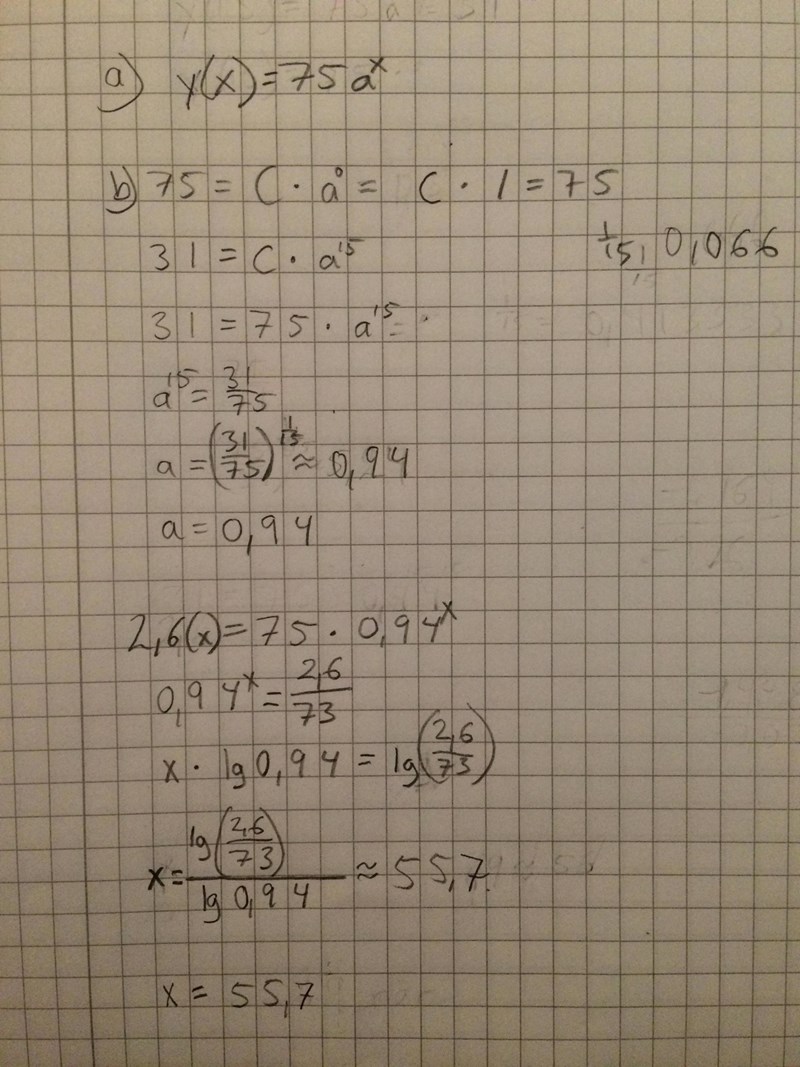 a) y(x)=75aˣ
b) 75 = C · a⁰ = C · 1 = 75
31 = C · a¹⁵
1/15, 0,066
31 = 75 · a¹⁵ =
a¹⁵ = 31/75
a = (31/75)^1/15 ≈ 0,94
a = 0,94
2,6(x) = 75 · 0,94ˣ
0,94ˣ = 2,6/73
x · lg 0,94 = lg(2,6/73)
x = lg(2,6/73)/lg 0,94 ≈ 55,7
x = 55,7